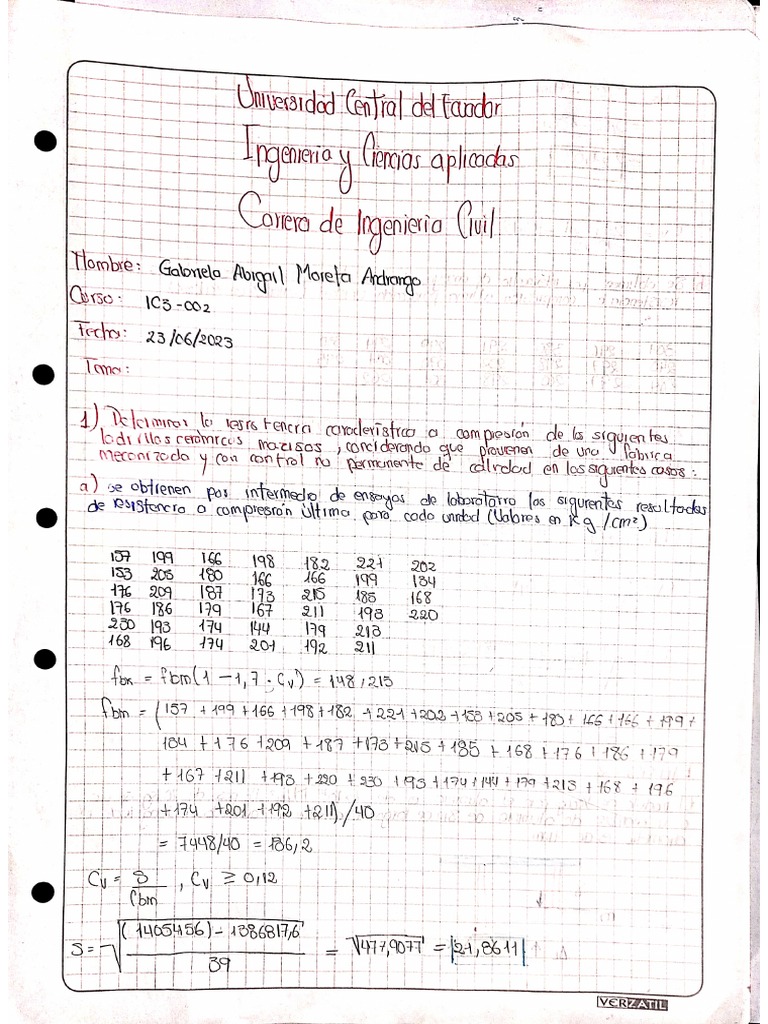 Universidad Central del Ecuador
Ingenieria y Ciencias aplicadas
Carrera de Ingenieria Civil
Nombre: Gabriela Abigail Moreta Andrango
Curso: IC3-002
Fecha: 23/06/2023
Tema:
1) Determinar la resistencia caracteristica a compresión de los siguientes
ladrillos cerámicos mazisos, considerando que provienen de una fabrica
mecanizada y con control no permanente de calidad en los siguientes casos:
a) se obtienen por intermedio de ensayos de laboratorio los siguientes resultados
de resistencia a compresión última para cada unidad (Valores en Kg/cm²)
157 199 166 198 182 221 202
153 205 180 166 166 199 184
176 209 187 173 215 185 168
176 186 179 167 211 193 220
230 193 174 144 179 213
168 196 174 201 192 211
fbk = fbm(1-1,7·Cv) = 148,215
fbm = (157+199+166+198+182+221+202+153+205+180+166+166+199+
184+176+209+187+173+215+185+168+176+186+179
+167+211+193+220+230+193+174+144+179+213+168+196
+174+201+192+211)/40
= 7448/40 = 186,2
Cv = S/fbm, Cv ≥ 0,12
S = √((1405456)-1386817,6/39) = √477,9077 = |21,8611|
VERZATIL